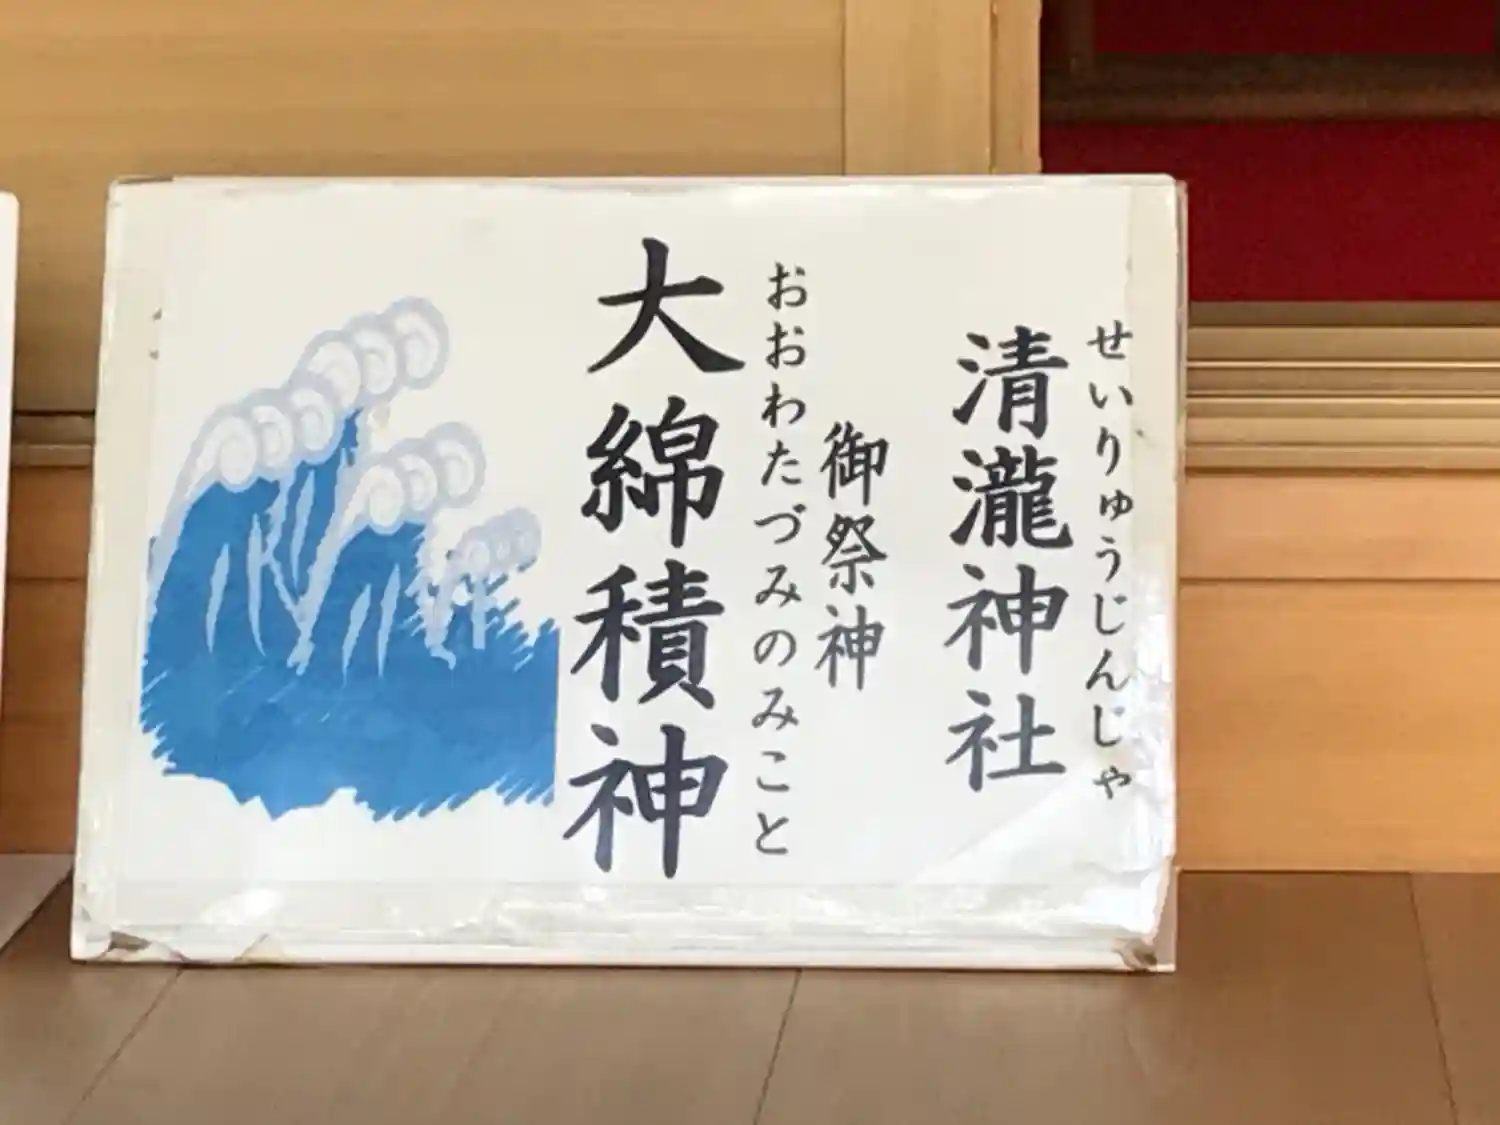 せいりゅうじんじゃ
清瀧神社
御祭神
おおわたづみのみこと
大綿積神